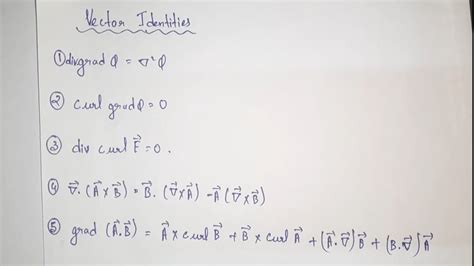 Vector Identities
① div grad φ = ∇²φ
② curl grad φ = 0
③ div curl F⃗ = 0.
④ ∇⃗. (A⃗ × B⃗) = B⃗. (∇⃗×A⃗) - A⃗ (∇⃗×B⃗)
⑤ grad (A⃗.B⃗) = A⃗ × curl B⃗ + B⃗ × curl A⃗ + (A⃗.∇⃗)B⃗ + (B.∇⃗)A⃗